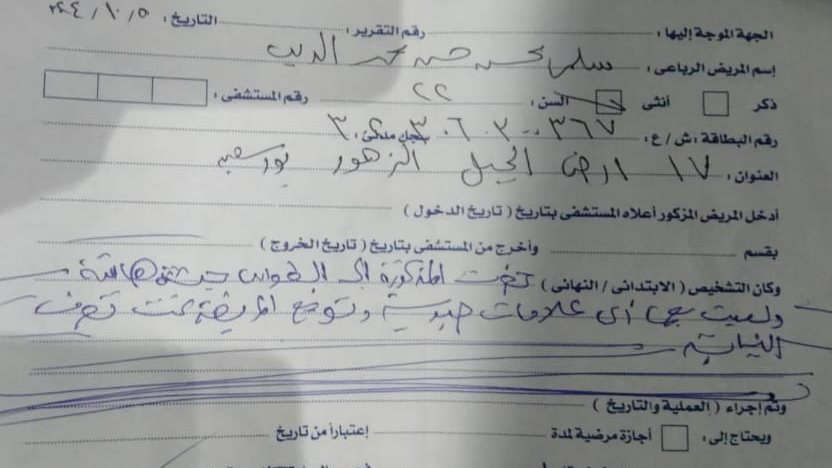 الجهة الموجة إليها : رقم التقرير : التاريخ : ٢٠٢٤/١٠/٥
إسم المريض الرباعى : سلمى محسن حسن محمد الديب
ذكر أنثى السن : ٢٢ رقم المستشفى :
رقم البطاقة : ش / ع : سجل مدنى :
العنوان : ١٧ ارض الجبل الزهور بورسعيد
أدخل المريض المزكور أعلاه المستشفى بتاريخ ( تاريخ الدخول )
بقسم وأخرج من المستشفى بتاريخ ( تاريخ الخروج )
وكان التشخيص ( الابتدائى / النهائى ) حضرت المذكورة الى الطوارئ جثة هامدة
وليست بها أى علامات حيوية وتوضع المريضة تحت تصرف
النيابة
وتم إجراء ( العملية والتاريخ )
ويحتاج إلى : أجازة مرضية لمدة إعتباراً من تاريخ